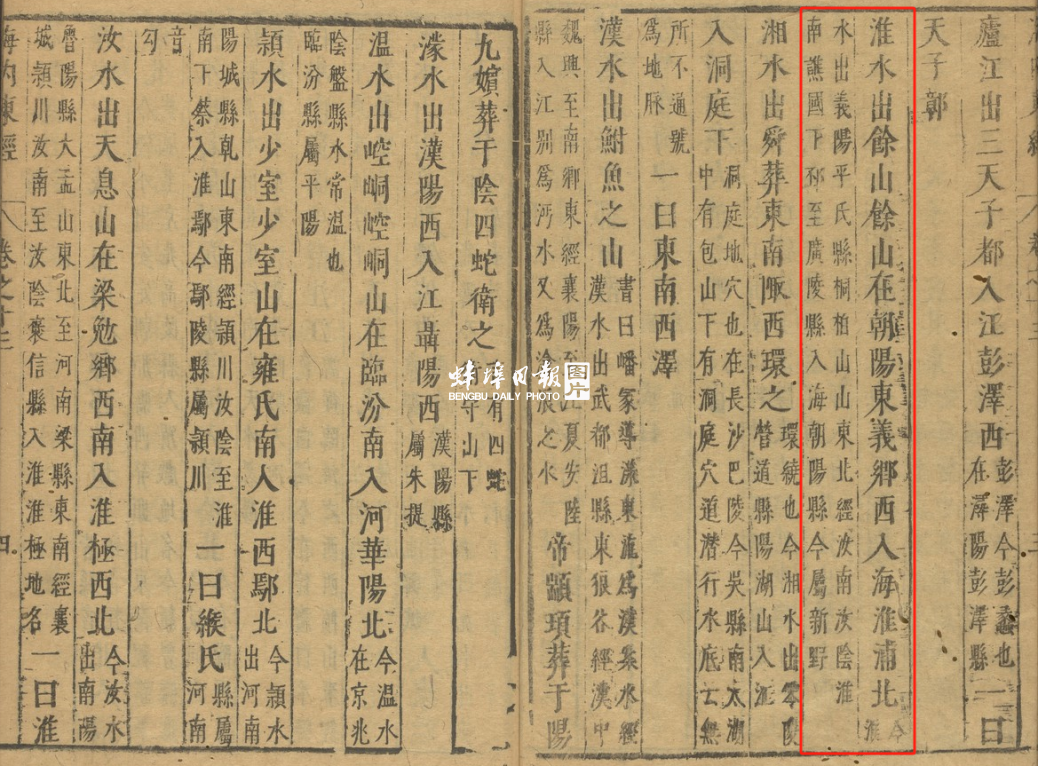 廬江出三天子都入江彭澤西
彭澤今彭蠡也
在潯陽彭澤縣
一曰
天子鄣
淮水出餘山餘山在朝陽東義鄉西入海淮浦北
今
淮
水出義陽平氏縣桐柏山山東北經汝南汝陰淮
南譙國下邳至廣陵縣入海朝陽縣今屬新野
湘水出舜葬東南陬西環之
環繞也今湘水出零陵
營道縣陽湖山入江
入洞庭下
洞庭地穴也在長沙巴陵今吳縣南太湖
中有包山下有洞庭穴道潛行水底云無
所不通號
為地脉
一曰東南西澤
漢水出鮒魚之山
書曰嶓冢導漾東流為漢案水經
漢水出武都沮縣東狼谷經漢中
魏興至南鄉東經襄陽至江夏安陸
縣入江別為沔水又為滄浪之水
帝顓頊葬于陽
九嬪葬于陰四蛇衛之
有四蛇
守山下
濛水出漢陽西入江聶陽西
漢陽縣
屬朱提
溫水出崆峒崆峒山在臨汾南入河華陽北
今溫水
在京兆
陰盤縣水常溫也
臨汾縣屬平陽
潁水出少室少室山在雍氏南入淮西鄢北
今潁水
出河南
陽城縣乹山東南經潁川汝陰至淮
南下蔡入淮鄢今鄢陵縣屬潁川
一曰緱氏
縣屬
河南
音
勾
汝水出天息山在梁勉鄉西南入淮極西北
今汝水
出南陽
魯陽縣大盂山東北至河南梁縣東南經襄
城潁川汝南至汝陰褒信縣入淮淮極地名
一曰淮
海內東經 卷之十三 四
蚌埠日報 图片
BENGBU DAILY PHOTO